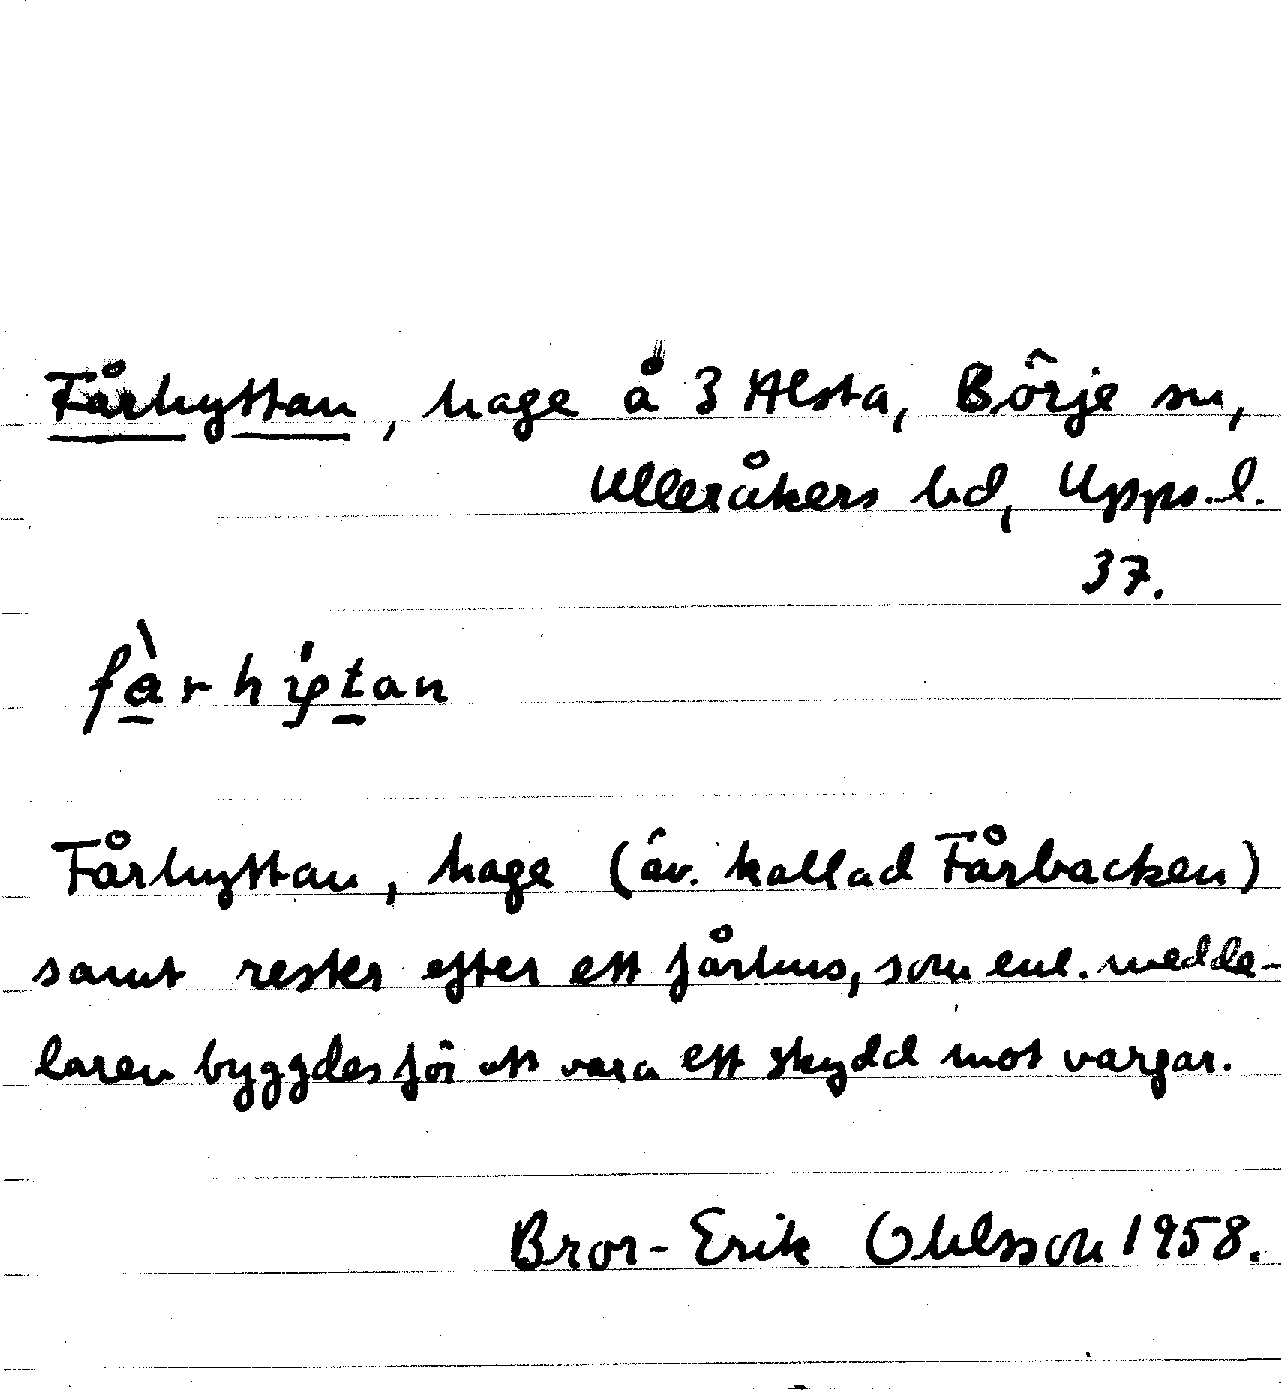 Fårhyttan, hage å 3 Alsta, Börje sn,
Ulleråkers hd, Upps. l.
37.
Fårhyttan, hage (äv. kallad Fårbacken)
samt rester efter ett fårhus, som enl. medde-
laren byggdes för att vara ett skydd mot vargar.
Bror-Erik Ohlsson 1958.